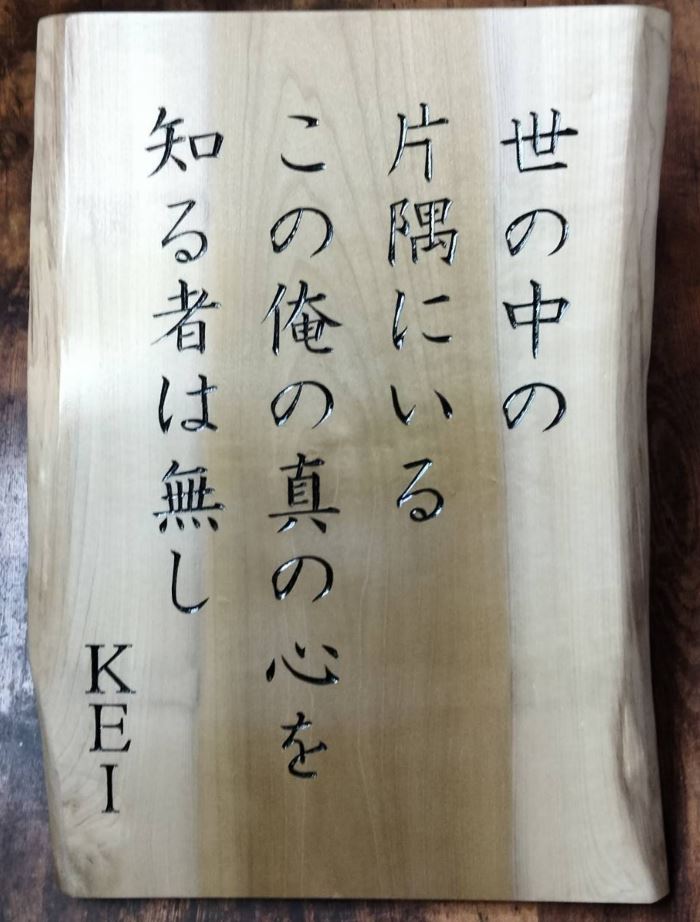 世の中の
片隅にいる
この俺の真の心を
知る者は無し
KEI